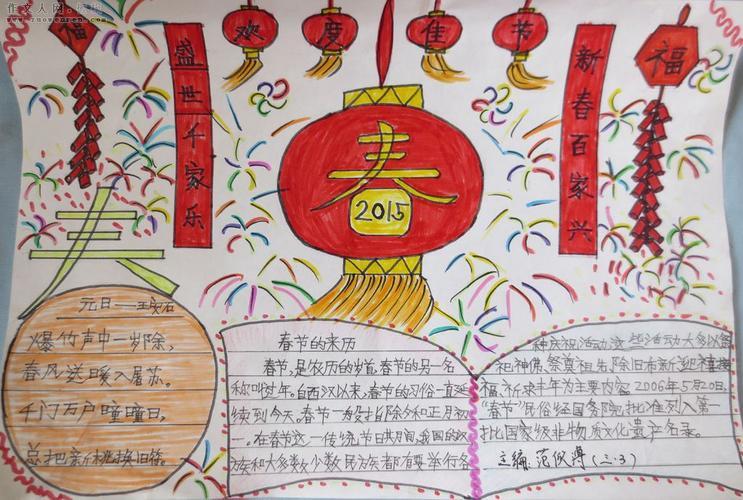 欢度佳节
福
盛世千家乐
新春百家兴
福
春
2015
春
元日——王安石
爆竹声中一岁除，
春风送暖入屠苏。
千门万户曈曈日，
总把新桃换旧符。
春节的来历
春节，是农历的岁首，春节的另一名
称叫过年。自西汉以来，春节的习俗一直延
续到今天。春节一般指除夕和正月初
一。在春节这一传统节日其间，我国的汉
族和大多数少数民族都有要举行各
种庆祝活动，这些活动大多以祭
祀神佛、祭奠祖先、除旧布新、迎禧接
福、祈求丰年为主要内容。2006年5月20日，
“春节”民俗经国务院批准列入第一
批国家级非物质文化遗产名录。
主编：范仪（三.3）